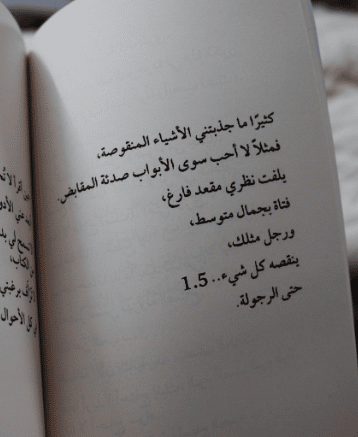 كثيرًا ما جذبتني الأشياء المنقوصة،
فمثلاً لا أحب سوى الأبواب صدئة المقابض.
يلفت نظري مقعد فارغ،
فتاة بجمال متوسط،
ورجل مثلك،
ينقصه كل شيء.. 1.5
حتى الرجولة.
الكتاب،
كل الأحوال